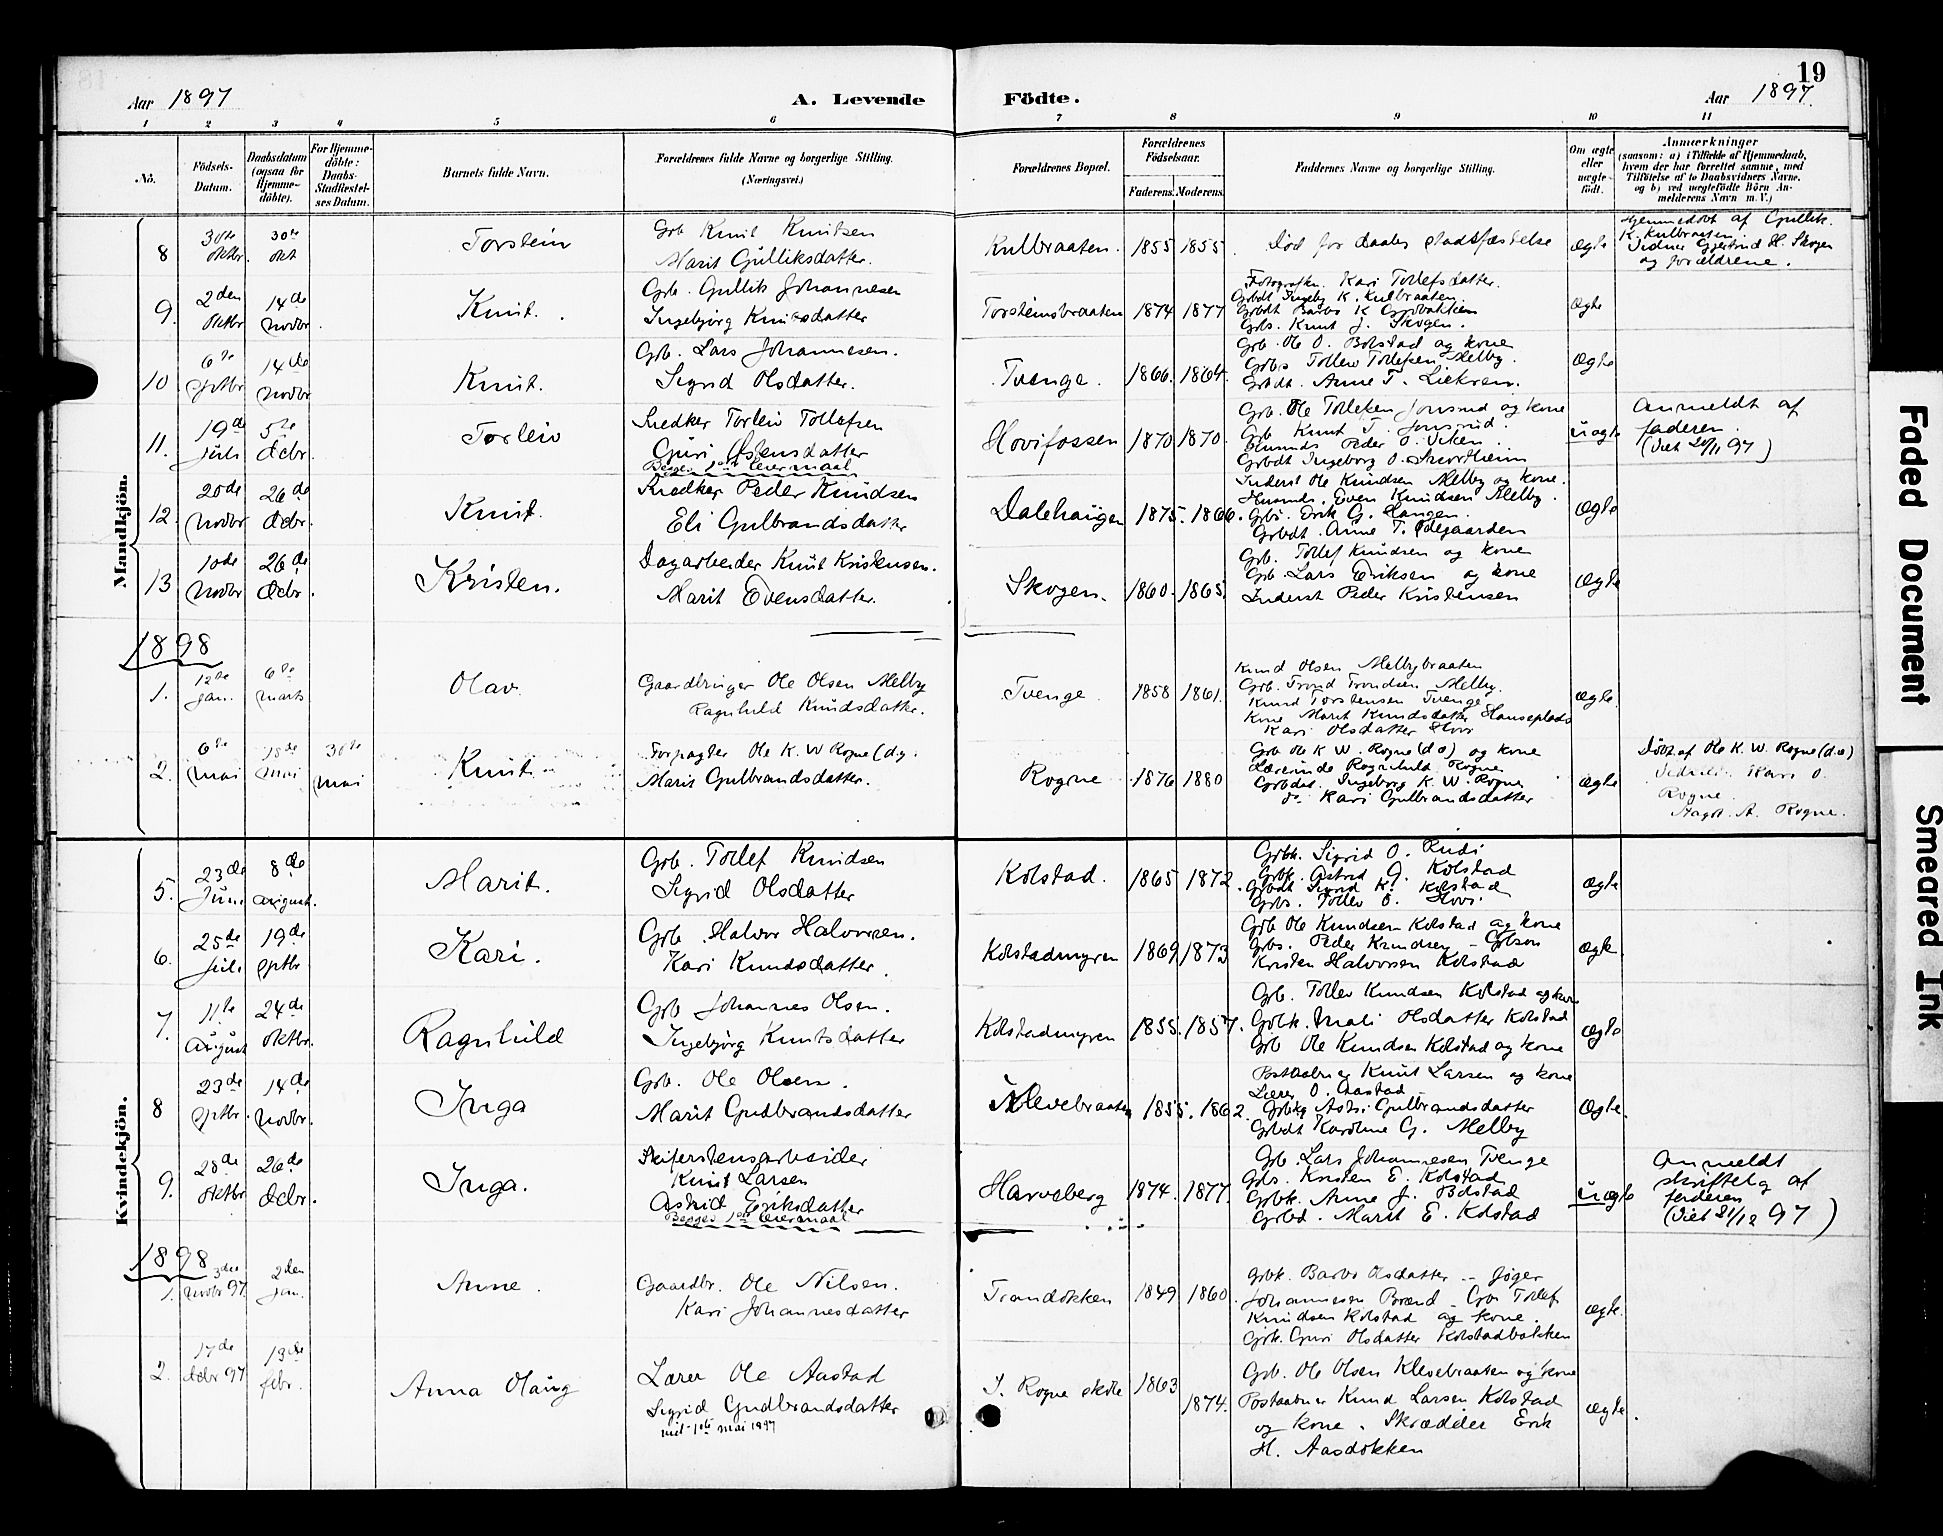 19
Aar 1897
A. Levende Födte.
Aar 1897.
1 2 3 4 5 6 7 8 9 10 11
No.
Födsels-
Datum.
Daabsdatum
(ogsaa for
Hjemme-
döbte).
For Hjemme-
döbte:
Daabs-
Stadfæstel-
ses Datum.
Barnets fulde Navn.
Forældrenes fulde Navne og borgerlige Stilling.
(Næringsvei.)
Forældrenes Bopæl.
Forældrenes
Födselsaar.
Faderens. Moderens.
Faddernes Navne og borgerlige Stilling.
Om ægte
eller
uægte
födt.
Anmærkninger
(saasom: a) i Tilfælde af Hjemmedaab,
hvem der har forrettet samme, med
Tilföielse af to Daabsvidners Navne,
og b) ved uægtefödte Börn An-
melderens Navn m. V.)
Mandkjön.
8
30te
Oktbr.
30te
Okt
Torstein
Grb Knut Knutsen
Marit Gulliksdatter.
Kulbraaten.
1855 1855
Död før daabs stadsfæstelse
ægte
Hjemmedöbt af Gullik
K. Kulbraaten
Vidner Gjertrud H. Skogen
og forældrene.
9.
2den
Oktbr
14de
Novbr.
Knut.
Grb. Gullik Johannesen
Ingebjørg Knutsdatter
Torsteinsbraaten
1874 1877
Kari Tollefsdatter.
Grbdt Ingebg K. Kulbraaten.
Grbdt Barbo K
Grbs. Knut J. Skogen.
ægte
10
6te
Sptbr
14de
Novbr
Knut.
Grb. Lars Johannesen.
Sigrid Olsdatter.
Tvenge.
1866. 1864.
Grb. Ole O. Bolstad og kone
Grbs Tollev Tollefsen Melby.
Grbdt. Anne T. Liekren.
ægte
11.
19de
Juli
5te
Decbr.
Torleiv
Skredker Torleiv Tollefsen
Guri Østensdatter
Begges 1ste leiermaal
Hovifossen
1870 1870.
Grb. Ole Tollefsen Jonsrud og kone
Grb Knut T. Jonsrud.
Husmds Peder O. Viken.
Grbdt Ingeborg O. Skvortheim
uægte
Anmeldt af
faderen.
(Viet 20/11 97)
12.
20de
Novbr
26de
Decbr.
Knut.
Skredker Peder Knudsen
Eli Gulbrandsdatter
Dalehaugen
1875. 1866.
Inderst Ole Knudsen Melby og kone.
Husmds. Even Knudsen Melby.
Grbs. Erik G. Haugen.
Grbdt. Anne T. Ødegaarden
ægte
13
10de
Novbr
26de
Decbr.
Kristen.
Dagarbeider Knut Kristensen.
Marit Evensdatter.
Skogen.
1860. 1865.
Grb. Tollef Knudsen og kone
Grb. Lars Eriksen og kone
Inderst Peder Kristensen
ægte
1898
1.
12te
Jan.
6te
Marts
Olav
Gaardbruger Ole Olsen Melby
Ragnhild Knudsdatter.
Tvenge.
1858 1861.
Knud Olsen Melbybraaten
Grb. Trond Trondsen Melby.
Knud Torstensen Tvenge
Kone Marit Knudsdatter Hauseplads
Kari Olsdatter Hovi
ægte.
2.
6te
Mai
15de
Mai
30te
Mai
Knut.
Forpagter Ole K. W Rogne (d.y.
Marit Gulbrandsdatter.
Rogne
1876 1880
Grb Ole K W. Rogne (d.æ) og kone
Lærerinde Ragnhild Rogne
Grbdat. Ingeborg K. W. Rogne
do Kari Gulbrandsdatter
ægte
Døbt af Ole K. W. Rogne (d.æ)
Kari O.
Rogne.
A. Rogne.
Kvindekjön.
5.
23de
Juni
8de
August.
Marit.
Grb. Tollef Knudsen
Sigrid Olsdatter
Kolstad.
1865 1872.
Grbk. Sigrid O. Rudi
Grbk. Astrid J. Kolstad
Grbdt Sigrid K. Kolstad
Grbs. Tollev O. Hovi.
ægte
6.
25de
Juli
19de
Sptbr
Kari.
Grb. Halvor Halvorsen.
Kari Knudsdatter.
Kolstadmyren
1869 1873
Grb Ole Knudsen Kolstad og kone
Grbs. Peder Knudsen – Grbson
Kristen Halvorsen Kolstad
ægte.
7.
11te
August
24de
Oktbr.
Ragnhild
Grb Johannes Olsen.
Ingebjørg Knutsdatter
Kolstadmyren
1855. 1857.
Grb. Tollev Knudsen Kolstad og kone
Grbk. Mali Olsdatter Kolstad
Grb Ole Knudsen Kolstad og kone
ægte
8
23de
Sptbr.
14de
Novbr.
Inga
Grb. Ole Olsen.
Marit Gudbrandsdatter
Klevebraaten
1855. 1862.
Postaabner Knut Larsen og kone
Lærer O. Aastad –
Grbkg Astri Gulbrandsdatter
Grbdt Karoline G. Melby
ægte.
9.
28de
Oktbr
26de
Decbr.
Inga.
Skiferstensarbeider
Knut Larsen
Astrid Eriksdatter
Begges 1ste leiermaal
Harveberg
1874. 1877.
Grb. Lars Johannesen Tvenge
Gds. Kristen E. Kolstad
Grbk. Anne J. Bolstad
Grbd. Marit E. Kolstad
uægte
Anmeldt
skriftelig af
faderen
(Viet 31/12 97)
1898
1.
3die
Novbr 97
2den
Jan.
Anne.
Gaardbr. Ole Nilsen.
Kari Johannesdatter
Trandokken
1849 1860.
Grbk. Barbo Olsdatter – Jøger
Johannesen Brænd – Grb Tollef
Knudsen Kolstad og kone.
Grk. Guri Olsdatter Kolstadbakken
ægte.
2.
17de
Decbr 97
13de
Febr.
Anna Olaug
Lærer Ole Aastad
Sigrid Gudbrandsdatter
viet 1ste mai 1897
I. Rogne skole
1863
1874.
Grb. Ole Olsen Klevebraaten og kone
Postaabner Knud Larsen Kolstad
og kone. Skrædder Erik
H. Aasdokken
ægte.
Faded Document
Smeared Ink